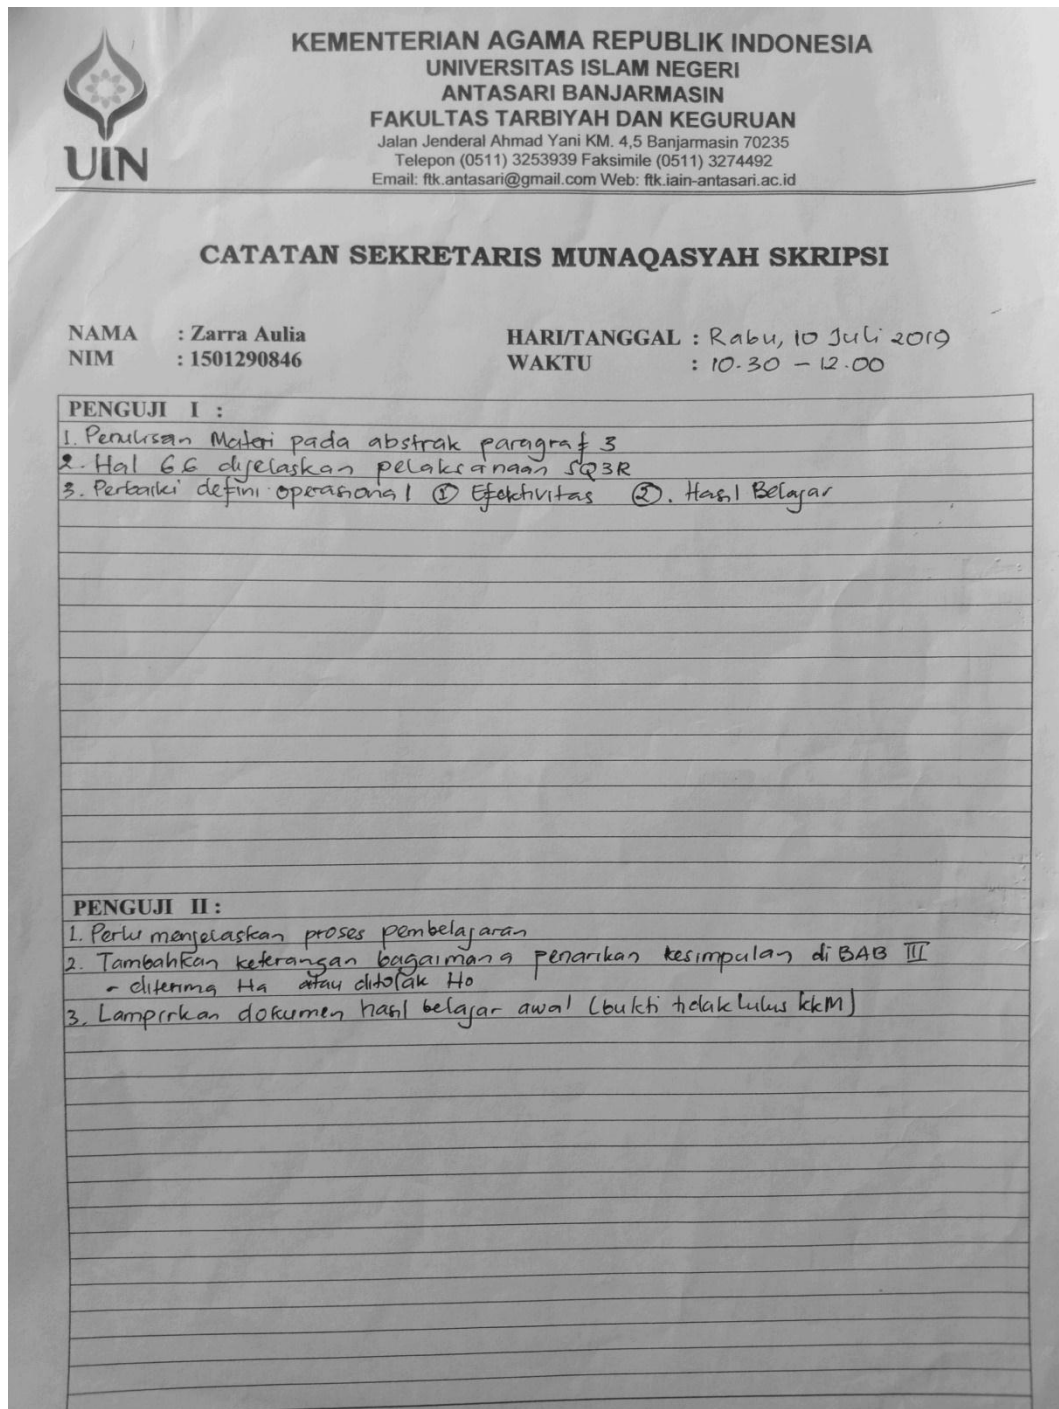 UIN
KEMENTERIAN AGAMA REPUBLIK INDONESIA
UNIVERSITAS ISLAM NEGERI
ANTASARI BANJARMASIN
FAKULTAS TARBIYAH DAN KEGURUAN
Jalan Jenderal Ahmad Yani KM. 4,5 Banjarmasin 70235
Telepon (0511) 3253939 Faksimile (0511) 3274492
Email: ftk.antasari@gmail.com Web: ftk.iain-antasari.ac.id
CATATAN SEKRETARIS MUNAQASYAH SKRIPSI
NAMA : Zarra Aulia
NIM : 1501290846
HARI/TANGGAL : Rabu, 10 Juli 2019
WAKTU : 10.30 - 12.00
PENGUJI I :
1. Penulisan Materi pada abstrak paragraf 3
2. Hal 66 dijelaskan pelaksanaan SQ3R
3. Perbaiki defini operasional ① Efektivitas ②. Hasil Belajar
PENGUJI II :
1. Perlu menjelaskan proses pembelajaran
2. Tambahkan keterangan bagaimana penarikan kesimpulan di BAB III
- diterima Ha atau ditolak Ho
3. Lampirkan dokumen hasil belajar awal (bukti tidak lulus KKM)